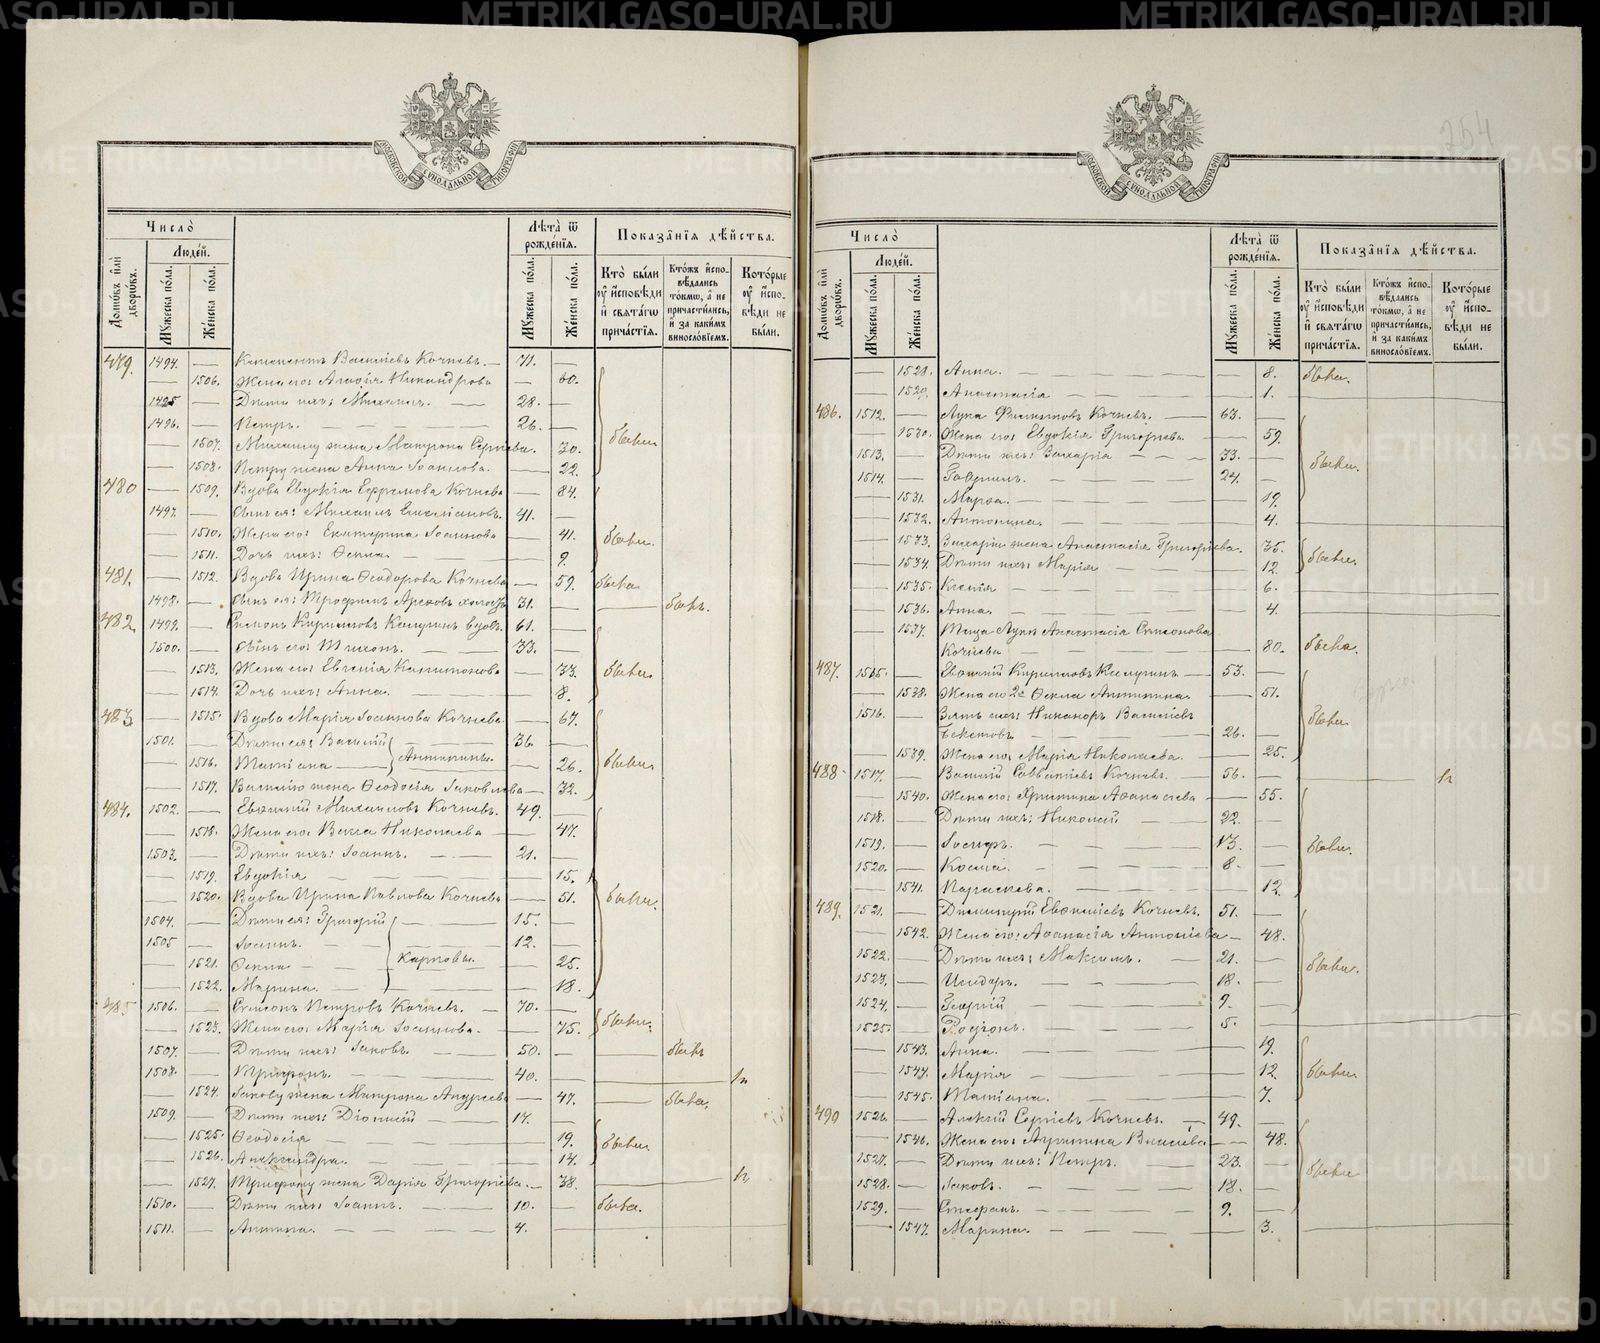 METRIKI.GASO-URAL.RU
МОСКОВСКОЙ СѴНОДАЛЬНОЙ ТИПОГРАФІИ
Число̀
Домѡвъ и҆лѝ дворѡвъ.
Люде́й.
Мꙋжеска по́ла.
Же́нска по́ла.
Лѣ́та ѿ рожде́нїѧ.
Мꙋжеска по́ла.
Же́нска по́ла.
Показа̑нїѧ дѣ́йства.
Кто̀ бы́ли ᲂу҆ и҆сповѣ́ди и҆ свѧта́гѡ прича́стїѧ.
Кто́жъ и҆спо-вѣ́дались то́кмѡ, а҆ не причасти́лись, и҆ за каки́мъ винословїемъ.
Кото́рые ᲂу҆ и҆спо-вѣ́ди не бы́ли.
479. 1494. — Василіевъ Кочневъ. — 71. —
— 1506. Жена его: Агафія Никандрова — 60.
1495 — Дѣти ихъ: Михаилъ. — 28. —
1496. — Петръ. — 26. — были.
— 1507. Михаилу жена Матрона Сергіева. 30.
— 1508. Петру жена Анна Іоаннова. — 22.
480 — 1509. Вдова Евдокія Ефремова Кочнева — 84.
1497. — Сынъ ея: Михаилъ 41. —
— 1510. Жена его: Екатерина Іоаннова — 41. были.
— 1511. Дочь ихъ: Ѳекла. — 9.
481. — 1512. Вдова Ирина Ѳеодорова Кочнева — 59. была
1498. — Сынъ ея: Трофимъ 31. — — былъ.
482. 1499. — Симеонъ Кириловъ вдовъ. 61. —
1500. — Сынъ его: Тихонъ. — 33. —
— 1513. Жена его: Евгенія Капитонова — 33. были.
— 1514. Дочь ихъ: Анна. — 8.
483 — 1515. Вдова Марія Іоаннова Кочнева. — 67.
1501. — Дѣти ея: Василій — 36. —
— 1516. Татіана — Антипины. — 26. были.
— 1517. Василію жена Ѳеодосія Іаковлева — 32.
484. 1502. — Евѳимій Михаиловъ Кочневъ. 49. —
— 1518. Жена его: Васса Николаева — 47.
1503. — Дѣти ихъ: Іоаннъ. — 21. —
— 1519. Евдокія — 15.
— 1520. Вдова Ирина Павлова Кочнева — 51. были.
1504. — Дѣти ея: Григорій — 15. —
1505 — Іоаннъ. — 12. —
— 1521. Ѳекла — Карповы. — 25.
— 1522. Марина. — 18.
485 1506. — Симеонъ Петровъ Кочневъ. — 70. —
— 1523. Жена его: Марія Іоаннова. — 75. были.
1507. — Дѣти ихъ: Іаковъ. — 50. — — былъ
1508. — Трифонъ. — 40. —
— 1524. Іакову жена Матрона Андреева — 47. — была.
1509. — Дѣти ихъ: Діонисій — 17. —
— 1525. Ѳеодосія — 19. были.
— 1526. Александра. — 14.
— 1527. Трифону жена Дарія Григоріева. — 38.
1510. — Дѣти ихъ: Іоаннъ. — 10. — была.
1511. — — 4.
264
Число̀
Домѡвъ и҆лѝ дворѡвъ.
Люде́й.
Мꙋжеска по́ла.
Же́нска по́ла.
Лѣ́та ѿ рожде́нїѧ.
Мꙋжеска по́ла.
Же́нска по́ла.
Показа̑нїѧ дѣ́йства.
Кто̀ бы́ли ᲂу҆ и҆сповѣ́ди и҆ свѧта́гѡ прича́стїѧ.
Кто́жъ и҆спо-вѣ́дались то́кмѡ, а҆ не причасти́лись, и҆ за каки́мъ винословїемъ.
Кото́рые ᲂу҆ и҆спо-вѣ́ди не бы́ли.
— 1528. Анна. — 8. была.
— 1529. Анастасія — 1.
486. 1512. — Лука Кочневъ. — 63. —
— 1530. Жена его: Евдокія Григоріева — 59.
1513. — Дѣти ихъ: Захарія — 33. —
1514. — Гавріилъ. — 24. — были.
— 1531. Марѳа. — 19.
— 1532. Антонина. — 4.
— 1533. Захаріи жена Анастасія Григоріева. 35.
— 1534. Дѣти ихъ: Марія — 12. были.
— 1535. Ксенія — 6.
— 1536. Анна. — 4.
— 1537. Теща Луки Анастасія Симеонова
Кочнева — 80. была.
487. 1515. — Евѳимій Кириловъ — 53. —
— 1538. Жена его 2я Ѳекла Антипина. — 51.
1516. — Зять ихъ: Никаноръ Василіевъ
Бекетовъ — 26. — были.
— 1539. Жена его, Марія Николаева. — 25.
488 1517. — Василій Савватіевъ Кочневъ. — 56. —
— 1540. Жена его: Христина Аѳанасіева — 55.
1518. — Дѣти ихъ: Николай — 22. —
1519. — Іосифъ. — 13. — были.
1520. — Косма. — 8. —
— 1541. Параскева. — 12.
489. 1521. — Димитрій Евѳиміевъ Кочневъ. 51. —
— 1542. Жена его: Аѳанасія Антоніева — 48.
1522. — Дѣти ихъ: Максимъ. — 21. —
1523. — Исидоръ. — 18. — были.
1524. — Георгій — 9. —
1525. — Родіонъ. — 5. —
— 1543. Анна. — 19.
— 1544. Марія — 12. были
— 1545. Татіана. — 7.
490 1526. — Алексій Сергіевъ Кочневъ. — 49. —
— 1546. Жена его: Агрипина Власіева — 48.
1527. — Дѣти ихъ: Петръ. — 23. — были
1528. — Іаковъ. — 18. —
1529. — Стефанъ. — 9. —
— 1547. Марина. — 3.